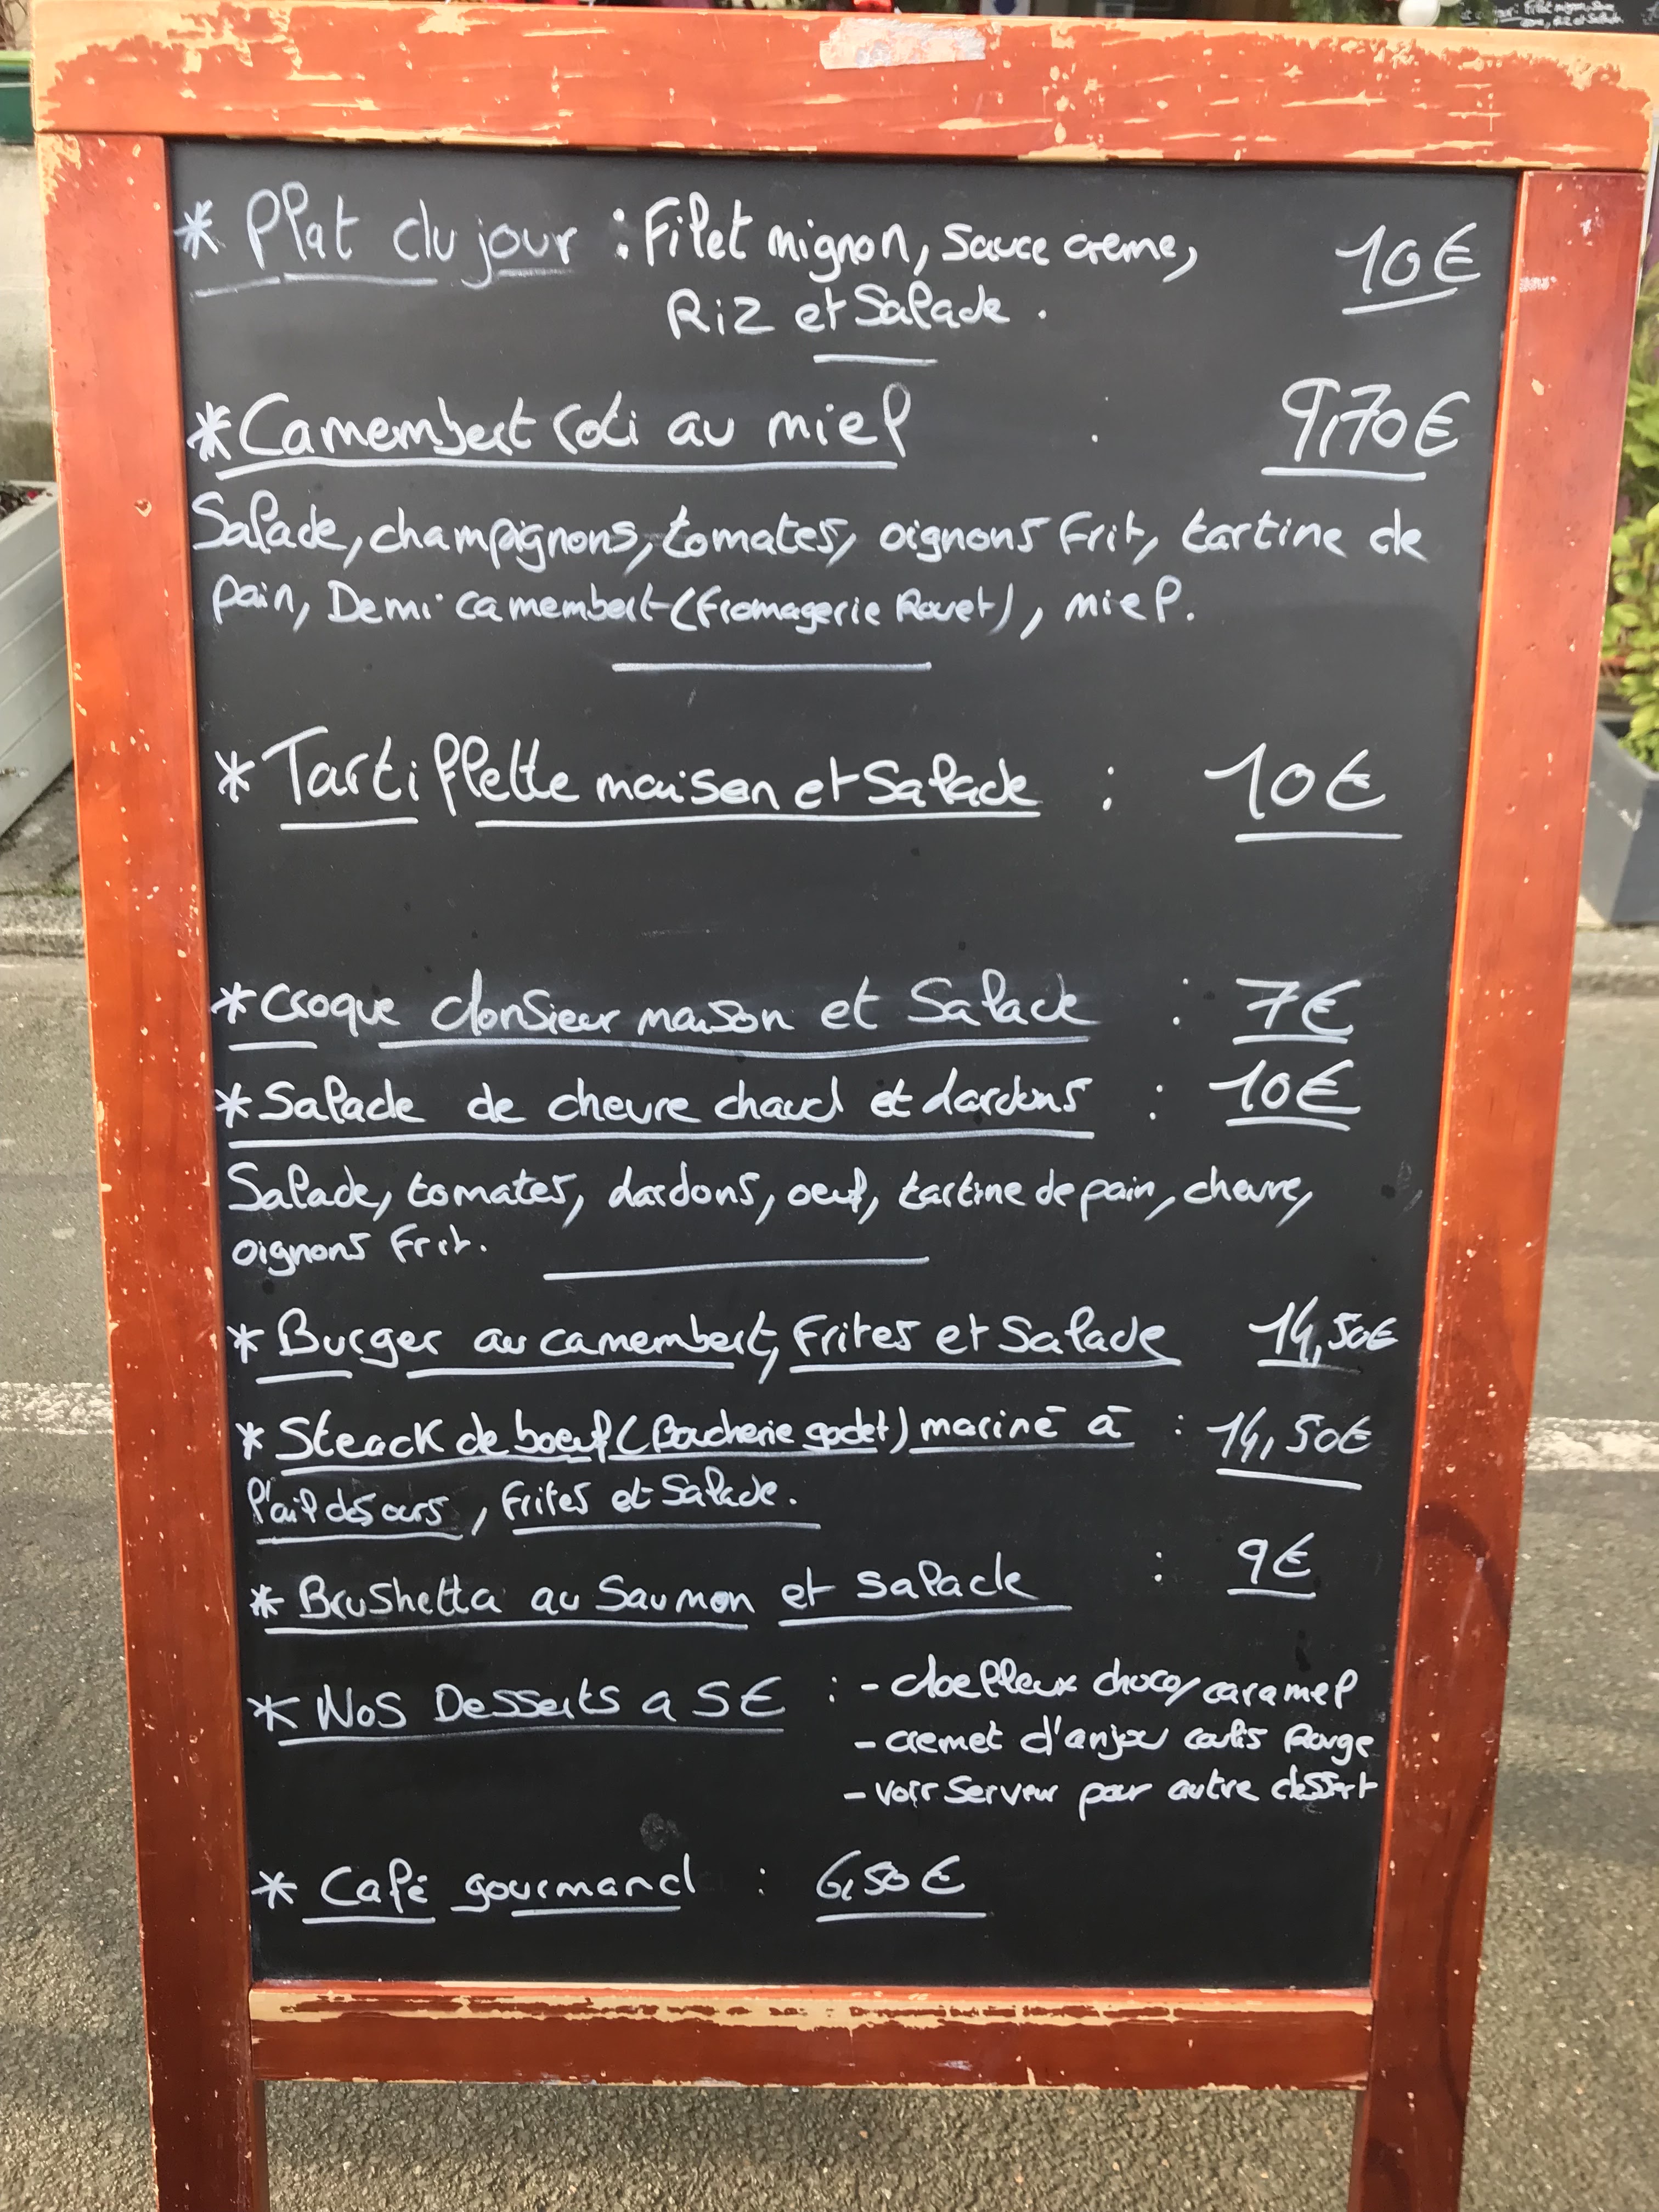 * Plat du jour : Filet mignon, Sauce creme, 10€
Riz et Salade.
* Camembert roti au miel 9,70€
Salade, champignons, tomates, oignons Frit, tartine de
pain, Demi camembert (Fromagerie Rouet), miel.
* Tartiflette maison et Salade : 10€
* Croque Monsieur maison et Salade : 7€
* Salade de chevre chaud et Lardons : 10€
Salade, tomates, Lardons, oeuf, tartine de pain, chevre,
oignons Frit.
* Burger au camembert, Frites et Salade 14,50€
* Steack de boeuf (Boucherie godet) mariné à : 14,50€
l'ail des ours, Frites et Salade.
* Brushetta au Saumon et salade : 9€
* Nos Desserts a 5€ : - Moelleux choco/caramel
- cremet d'anjou coulis Rouge
- voir Serveur pour autre dessert
* Café gourmand : 6,50€